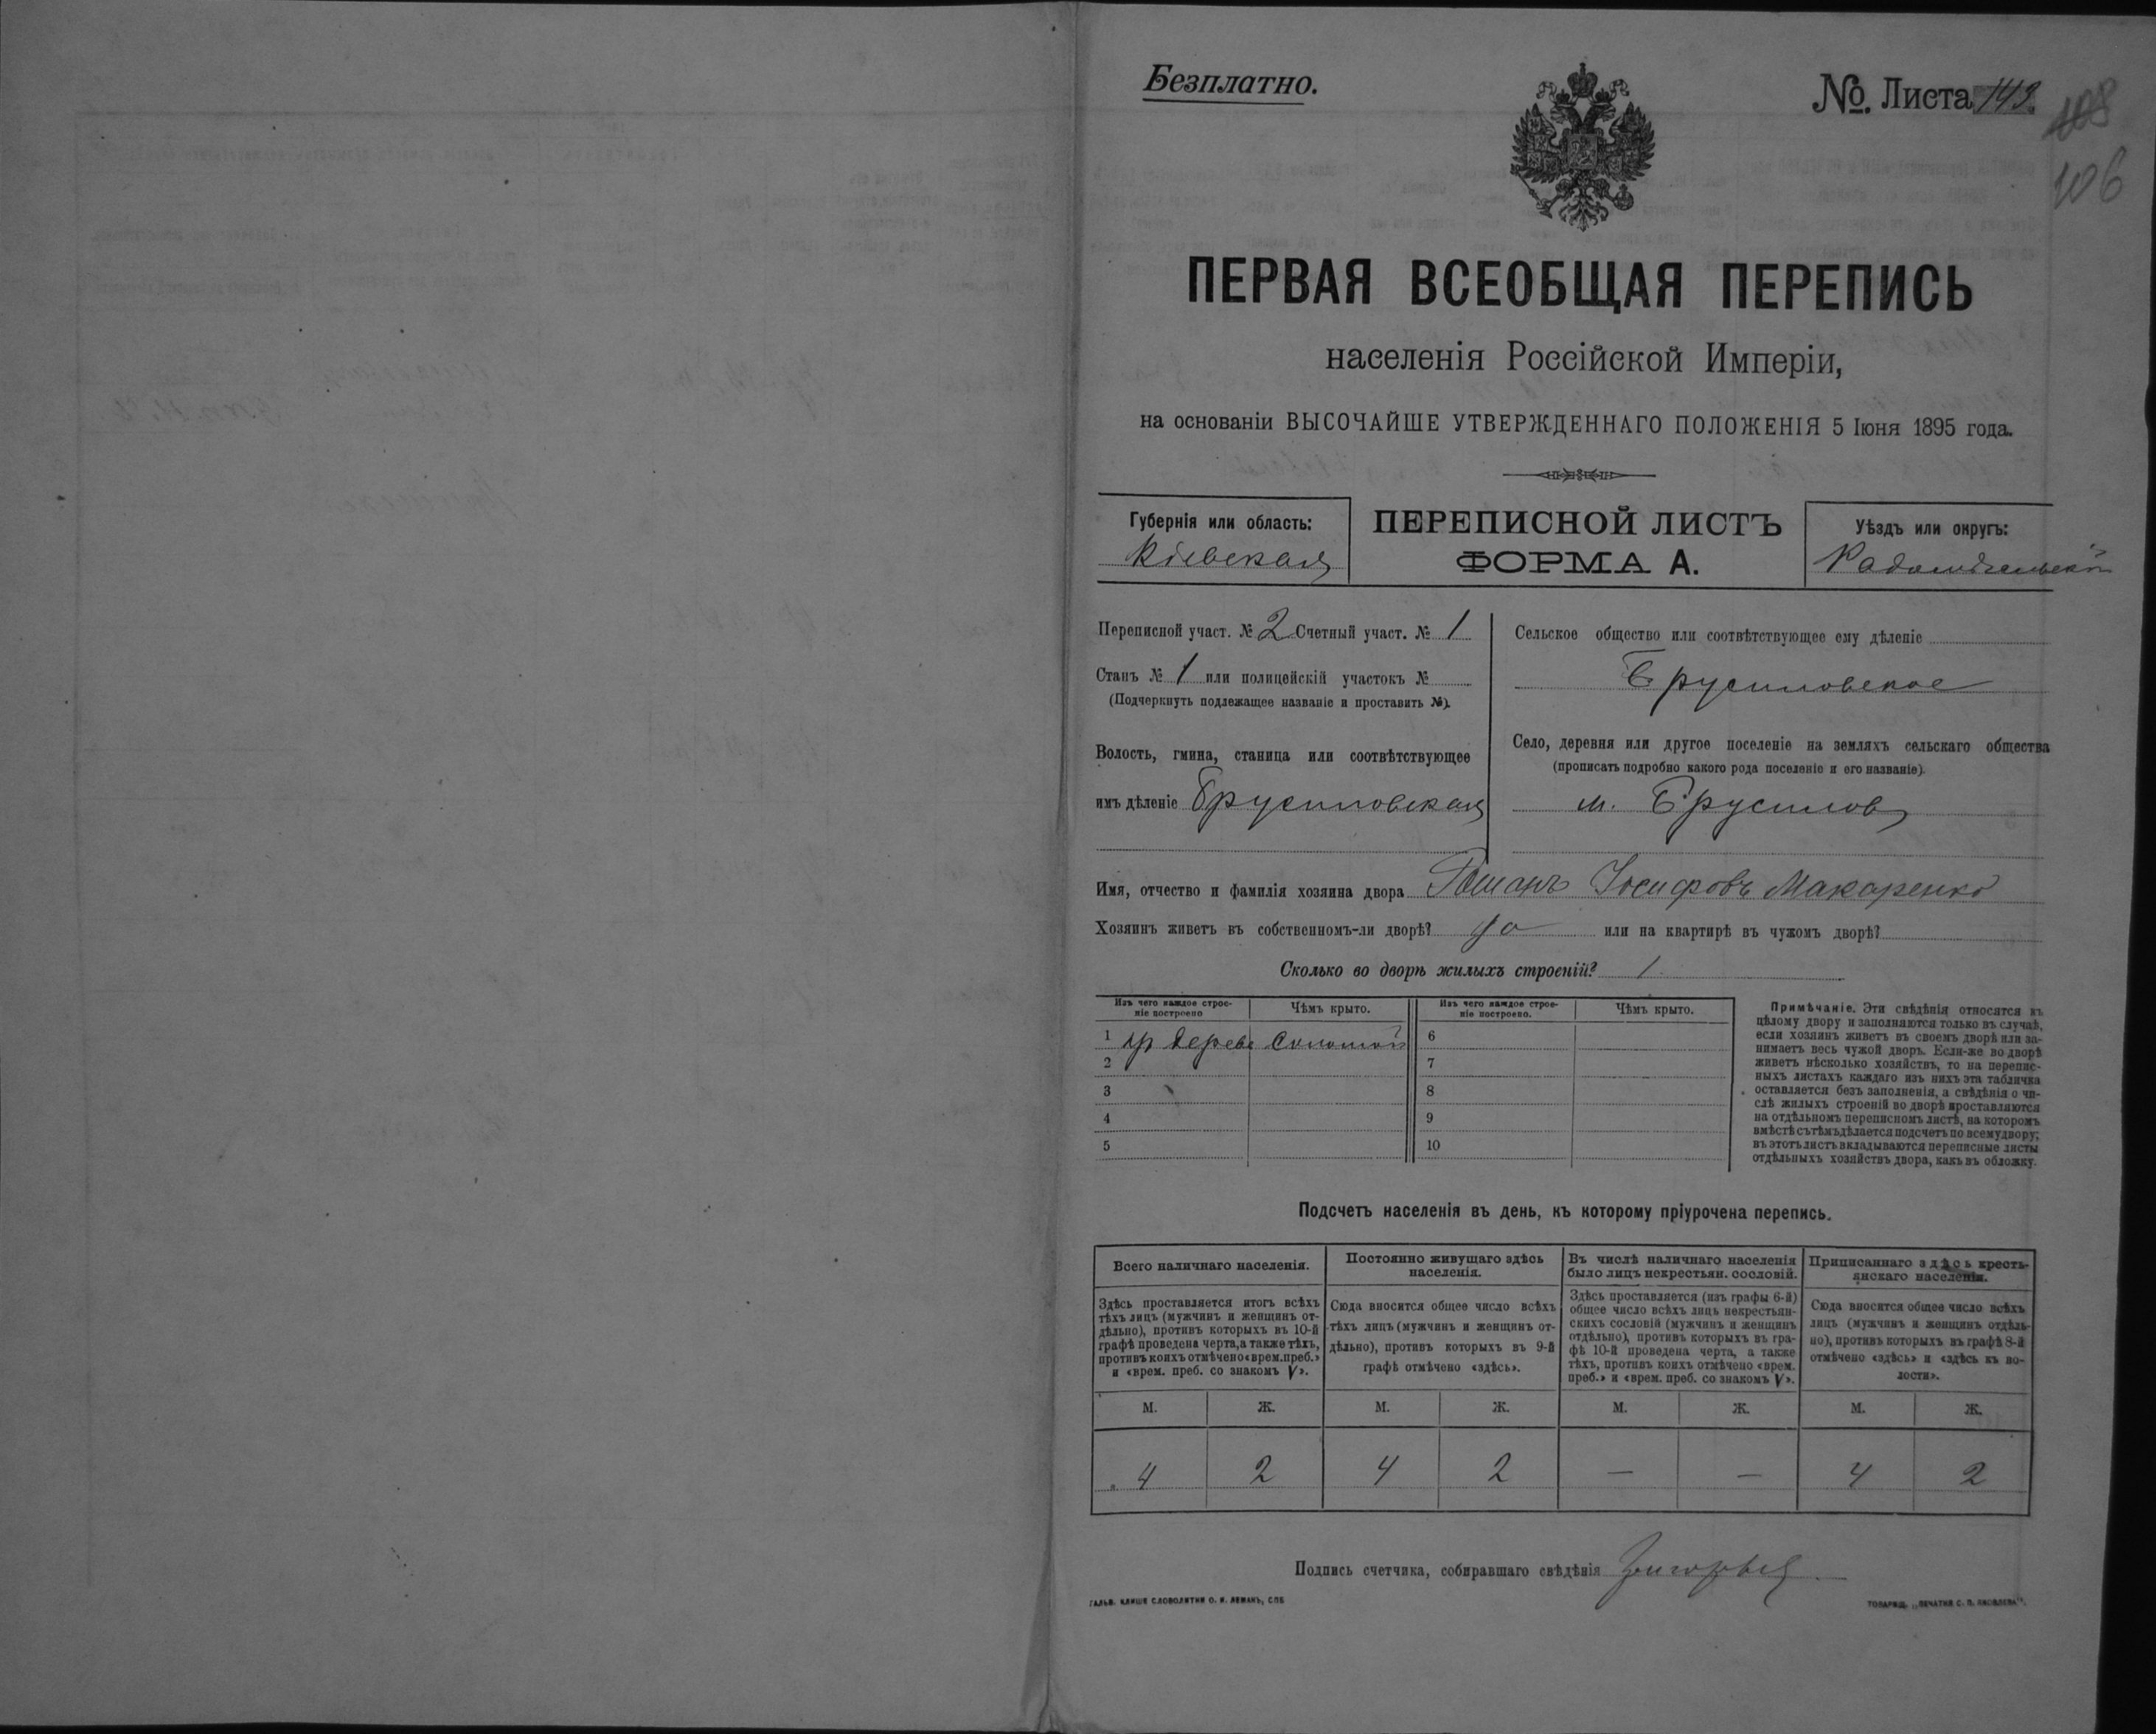 Безплатно.
№ Листа 143.
108
106
ПЕРВАЯ ВСЕОБЩАЯ ПЕРЕПИСЬ
населенія Россійской Имперіи,
на основаніи ВЫСОЧАЙШЕ УТВЕРЖДЕННАГО ПОЛОЖЕНІЯ 5 Іюня 1895 года.
Губернія или область:
Кіевская
ПЕРЕПИСНОЙ ЛИСТЪ
ФОРМА А.
Уѣздъ или округъ:
Радомысльскій
Переписной участ. № 2 Счетный участ. № 1
Станъ № 1 или полицейскій участокъ №
(Подчеркнуть подлежащее названіе и проставить №).
Волость, гмина, станица или соотвѣтствующее
имъ дѣленіе Брусиловская
Сельское общество или соотвѣтствующее ему дѣленіе
Брусиловское
Село, деревня или другое поселеніе на земляхъ сельскаго общества
(прописать подробно какого рода поселеніе и его названіе).
м. Брусилов
Имя, отчество и фамилія хозяина двора Романъ Іосифовъ Макаренко
Хозяинъ живетъ въ собственномъ-ли дворѣ? да или на квартирѣ въ чужомъ дворѣ?
Сколько во дворѣ жилыхъ строеній? 1
Изъ чего каждое строеніе построено
Чѣмъ крыто.
Изъ чего каждое строеніе построено.
Чѣмъ крыто.
1 дерева соломой 6
2 7
3 8
4 9
5 10
Примѣчаніе. Эти свѣдѣнія относятся къ
цѣлому двору и заполняются только въ случаѣ,
если хозяинъ живетъ въ своемъ дворѣ или за-
нимаетъ весь чужой дворъ. Если-же во дворѣ
живетъ нѣсколько хозяйствъ, то на перепис-
ныхъ листахъ каждаго изъ нихъ эта табличка
оставляется безъ заполненія, а свѣдѣнія о чи-
слѣ жилыхъ строеній во дворѣ проставляются
на отдѣльномъ переписномъ листѣ, на которомъ
вмѣстѣ съ тѣмъ дѣлается подсчетъ по всему двору;
въ этотъ листъ вкладываются переписные листы
отдѣльныхъ хозяйствъ двора, какъ въ обложку.
Подсчетъ населенія въ день, къ которому пріурочена перепись.
Всего наличнаго населенія.
Здѣсь проставляется итогъ всѣхъ
тѣхъ лицъ (мужчинъ и женщинъ от-
дѣльно), противъ которыхъ въ 10-й
графѣ проведена черта, а также тѣхъ,
противъ коихъ отмѣчено «врем. преб.»
и «врем. преб. со знакомъ V».
Постоянно живущаго здѣсь
населенія.
Сюда вносится общее число всѣхъ
тѣхъ лицъ (мужчинъ и женщинъ от-
дѣльно), противъ которыхъ въ 9-й
графѣ отмѣчено «здѣсь».
Въ числѣ наличнаго населенія
было лицъ некрестьян. сословій.
Здѣсь проставляется (изъ графы 6-й)
общее число всѣхъ лицъ некрестьян-
скихъ сословій (мужчинъ и женщинъ
отдѣльно), противъ которыхъ въ гра-
фѣ 10-й проведена черта, а также
тѣхъ, противъ коихъ отмѣчено «врем.
преб.» и «врем. преб. со знакомъ V».
Приписаннаго здѣсь кресть-
янскаго населенія.
Сюда вносится общее число всѣхъ
лицъ (мужчинъ и женщинъ отдѣль-
но), противъ которыхъ въ графѣ 8-й
отмѣчено «здѣсь» и «здѣсь къ во-
лости».
М. Ж. М. Ж. М. Ж. М. Ж.
4 2 4 2 — — 4 2
Подпись счетчика, собиравшаго свѣдѣнія
ГАЛЬВ. КЛИШЕ СЛОВОЛИТНИ О. И. ЛЕМАНЪ, СПБ
ТОВАРИЩ. „ПЕЧАТНЯ С. П. ЯКОВЛЕВА“.